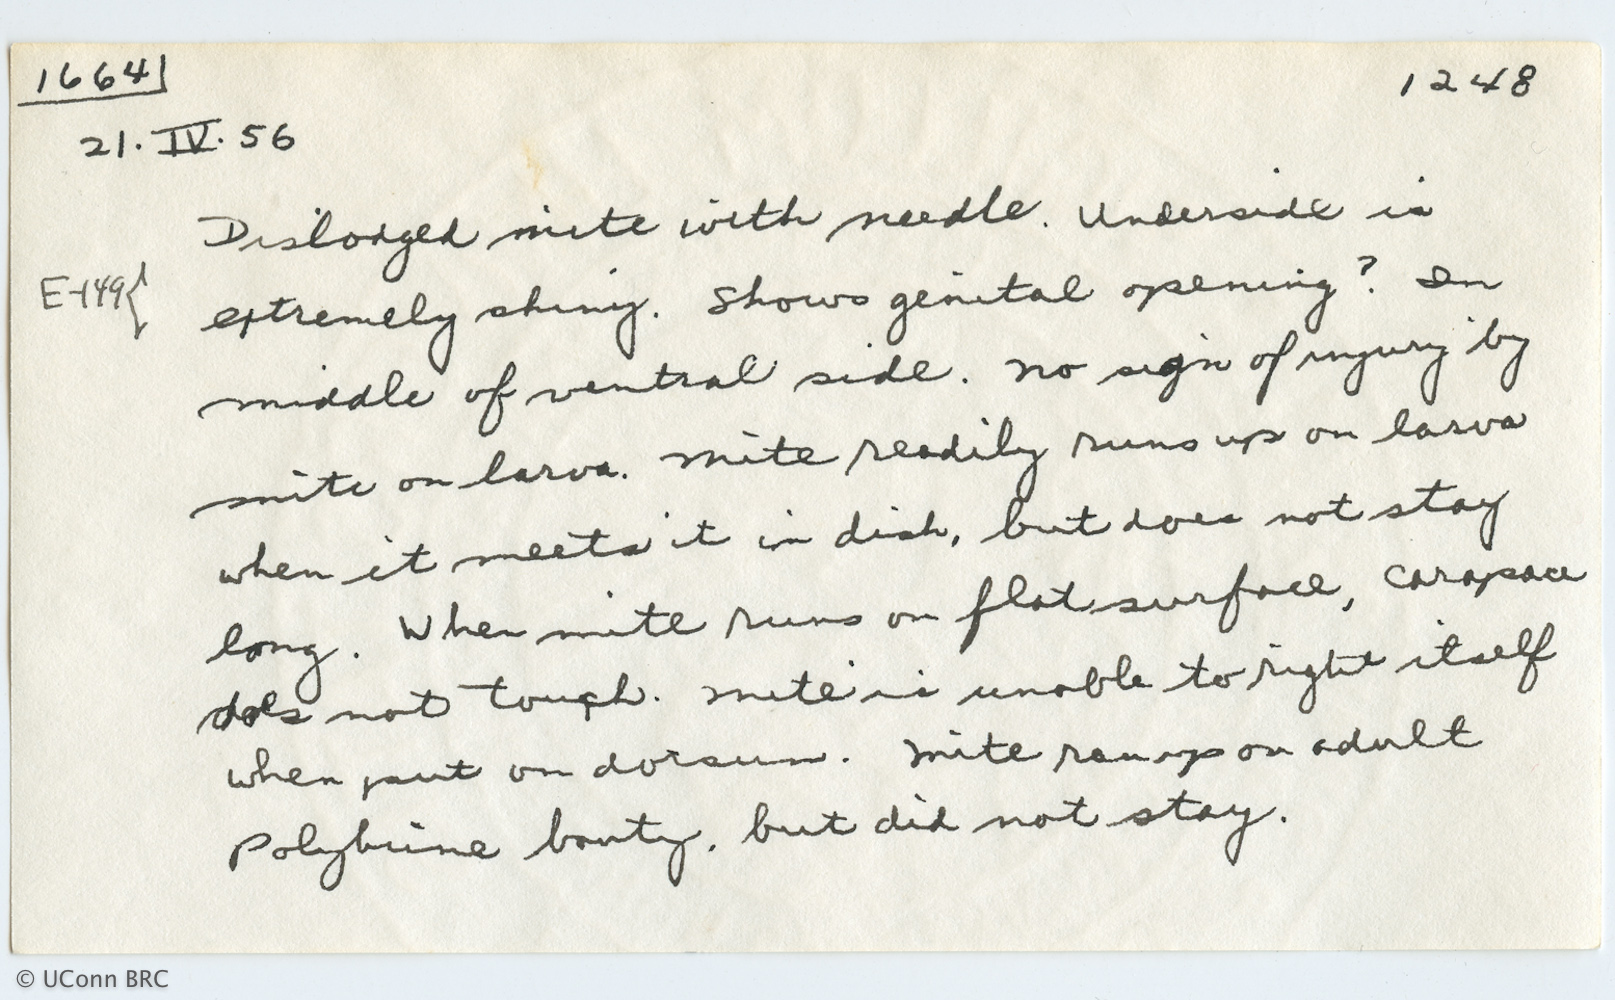 1664
1248
21. IV. 56
Dislodged mite with needle. Underside is
E-149{
extremely shiny. Shows genital opening? In
middle of ventral side. No sign of injury by
mite on larva. Mite readily runs up on larva
when it meets it in dish, but does not stay
long. When mite runs on flat surface, carapace
does not touch. Mite is unable to right itself
when put on dorsum. Mite ran up on adult
Polybiine, but did not stay.
© UConn BRC